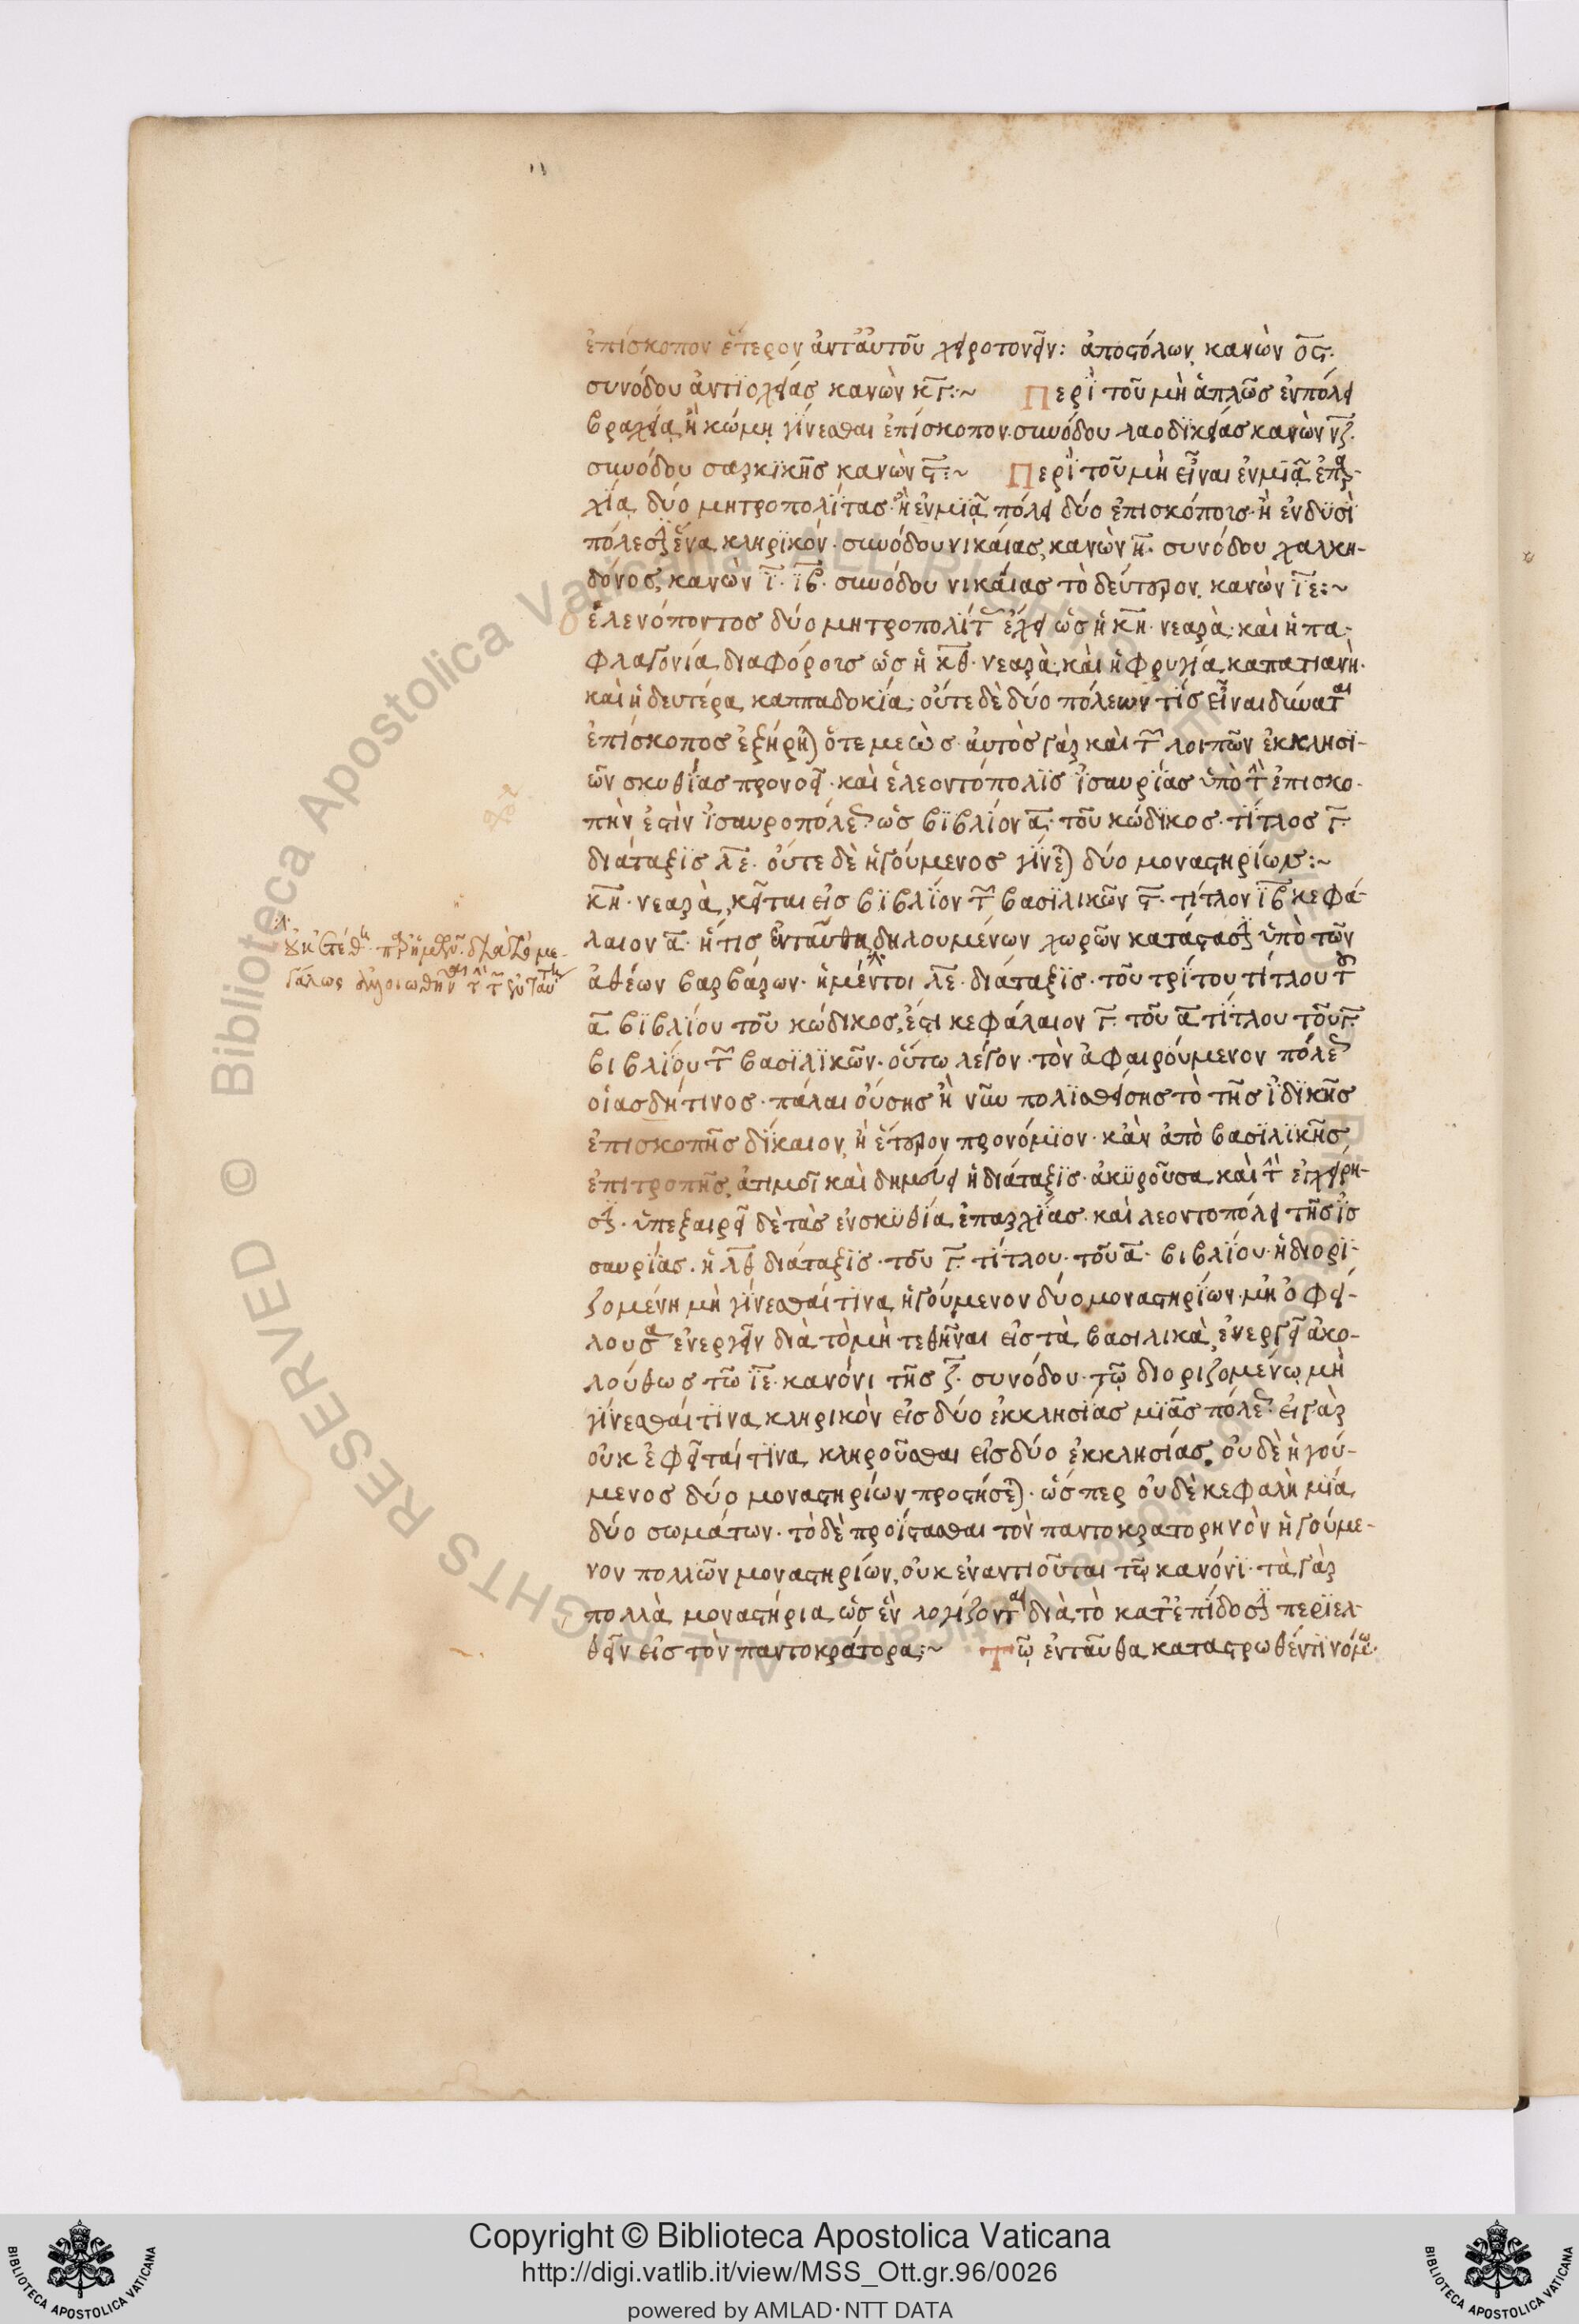 ἐπίσκοπον ἕτερον ἀντ' αὐτοῦ χειροτονεῖν: ἀποστόλων κανὼν οϛ.
συνόδου ἀντιοχείας κανὼν κγ:~ Περὶ τοῦ μὴ ἁπλῶς ἐν πόλει
βραχείᾳ ἢ κώμῃ γίνεσθαι ἐπίσκοπον. συνόδου λαοδικείας κανὼν νζ.
συνόδου σαρκικῆς κανὼν ϛ:~ Περὶ τοῦ μὴ εἶναι ἐν μιᾷ ἐπαρ-
χίᾳ δύο μητροπολίτας· ἢ ἐν μιᾷ πόλει δύο ἐπισκόποις· ἢ ἐν δυσὶ
πόλεσιν ἕνα κληρικόν· συνόδου νικαίας, κανὼν η. συνόδου χαλκη-
δόνος, κανὼν ι. ιβ. συνόδου νικαίας τὸ δεύτερον, κανὼν ιε:~
ὁ ἑλενόποντος δύο μητροπολίτας ἔχει ὡς ἡ κη. νεαρά· καὶ ἡ πα-
φλαγονία διαφόροις ὡς ἡ κθ. νεαρά· καὶ ἡ φρυγία καπατιανὴ·
καὶ ἡ δευτέρα καππαδοκία· οὔτε δὲ δύο πόλεων τίς εἶναι δύναται
ἐπίσκοπος ἐξῄρηται ὅτε μεὼς· αὐτὸς γὰρ καὶ τῶν λοιπῶν ἐκκλησι-
ῶν σκυθίας προνοεῖ· καὶ ἑλεοντόπολις ἰσαυρίας ὑπὸ τὴν ἐπισκο-
πὴν ἐστὶν ἰσαυροπόλεως ὡς βιβλίον α. τοῦ κώδικος· τίτλος γ.
διάταξις λε. οὔτε δὲ ἡγούμενος γίνεται δύο μοναστηρίων:~
κη. νεαρὰ, κεῖται εἰς βιβλίον τῶν βασιλικῶν ϛ. τίτλον ιβ κεφά-
λαιον α. ἥτις ἐνταῦθα δηλουμένων χωρῶν κατάστασιν ὑπὸ τῶν
ἀθέων βαρβάρων· ἡ μέντοι λε. διάταξις· τοῦ τρίτου τίτλου τοῦ
α βιβλίου τοῦ κώδικος, ἐστι κεφάλαιον γ. τοῦ α τίτλου τοῦ γ.
βιβλίου τῶν βασιλικῶν· οὕτω λέγον· τὸν ἀφαιρούμενον πόλεως
οἱασδήτινος· πάλαι οὔσης ἢ νῦν πολισθείσης τὸ τῆς ἰδικῆς
ἐπισκοπῆς δίκαιον, ἢ ἕτερον προνόμιον· κἀν ἀπὸ βασιλικῆς
ἐπιτροπῆς, ἀτιμοῖ καὶ δημεύει ἡ διάταξις· ἀκυροῦσα καὶ τὴν ἐγχείρη-
σιν· ὑπεξαιρεῖ δὲ τὰς ἐν σκυθίᾳ ἐπαρχίας· καὶ λεοντοπόλει τῆς ἰσ
σαυρίας. ἡ λθ διάταξις· τοῦ γ. τίτλου· τοῦ α. βιβλίου· ἡ διορι-
ζομένη μὴ γίνεσθαί τινα ἡγούμενον δύο μοναστηρίων· μὴ ὀφεί-
λουσα ἐνεργεῖν διὰ τὸ μὴ τεθῆναι εἰς τὰ βασιλικὰ, ἐνεργεῖ ἀκο-
λούθως τῶ ιε. κανόνι τῆς ζ. συνόδου· τῷ διοριζομένῳ μὴ
γίνεσθαί τινα κληρικὸν εἰς δύο ἐκκλησίας μιᾶς πόλεως· εἰ γὰρ
οὐκ ἐφεῖταί τινα κληροῦσθαι εἰς δύο ἐκκλησίας, οὐδὲ ἡγού-
μενος δύο μοναστηρίων προστήσεται· ὥσπερ οὐδὲ κεφαλὴ μία
δύο σωμάτων· τὸ δὲ προΐστασθαι τὸν παντοκρατορηνὸν ἡγούμε-
νον πολλῶν μοναστηρίων, οὐκ ἐναντιοῦται τῷ κανόνι· τὰ γὰρ
πολλὰ μοναστήρια ὡς ἓν λογίζονται διὰ τὸ κατ' ἐπίδοσιν περιελ-
θεῖν εἰς τὸν παντοκράτορα:~ Τῷ ἐνταῦθα καταστρωθέντι νόμω·